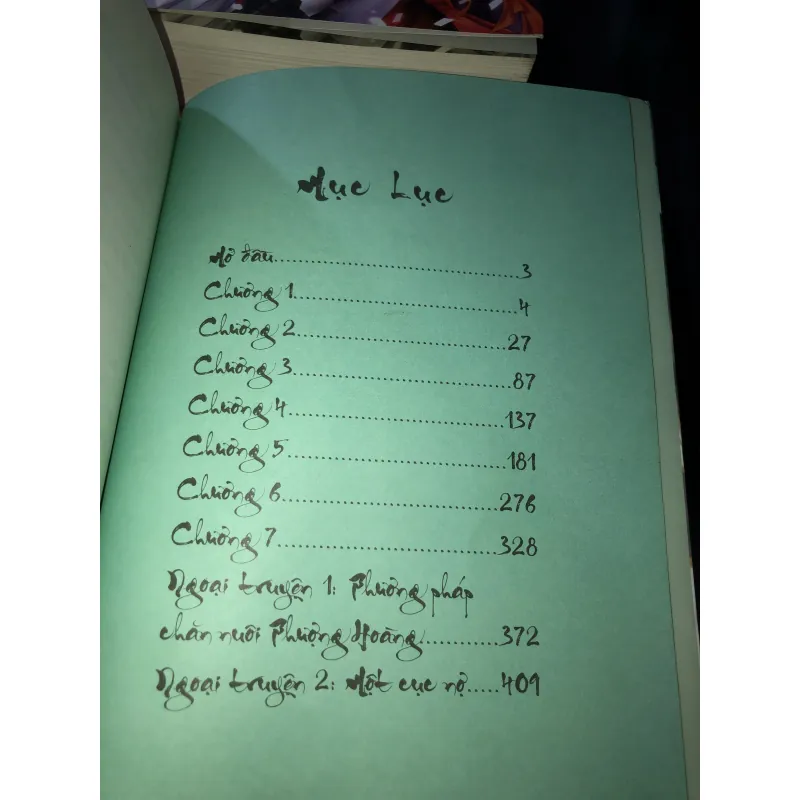 Mục Lục
Mở đầu........................................3
Chương 1........................................4
Chương 2........................................27
Chương 3........................................87
Chương 4........................................137
Chương 5........................................181
Chương 6........................................276
Chương 7........................................328
Ngoại truyện 1: Phương pháp
chăn nuôi Phượng Hoàng..........372
Ngoại truyện 2: Một cục nợ.....409